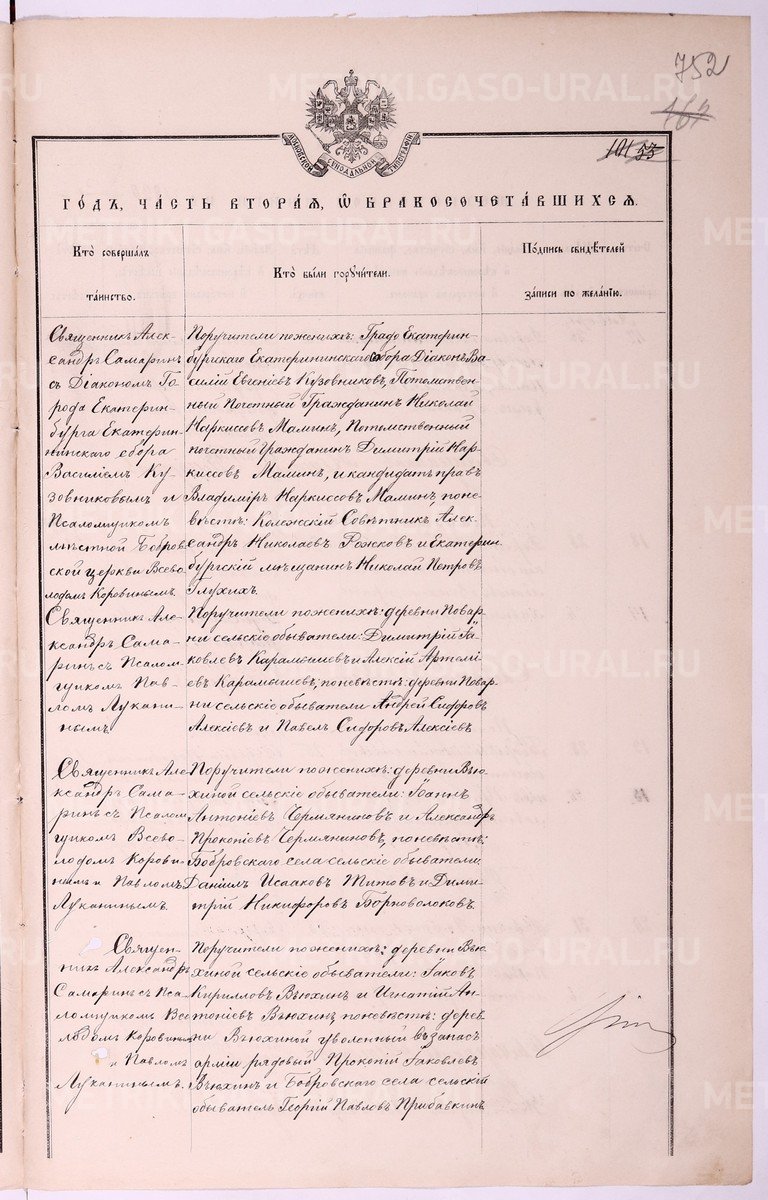 752
167
101 53
МОСКОВСКОЙ СИНОДАЛЬНЫЙ ТИПОГРАФІИ
ГОДЪ, ЧАСТЬ ВТОРАЯ, Ѡ БРАКОСОЧЕТАВШИХСЯ.
Кто совершалъ
таинство.
Кто были поручители.
Подпись свидѣтелей
записи по желанію.
Священникъ Алек-
сандръ Самаринъ
съ Діакономъ Го-
рода Екатерин-
бурга Екатерин-
нинскаго собора
Василіемъ Ку-
зовниковымъ и
Псаломщикомъ
мѣстной Бобров-
ской церкви Всево-
лодомъ Коровинымъ.
Поручители по женихѣ: Градо Екатерин-
бургскаго Екатерининскаго собора Діаконъ Ва-
силій Евгеніевъ Кузовниковъ, Потомствен-
ный Почетный Гражданинъ Николай
Наркиссовъ Маминъ, Потомственный
почетный Гражданинъ Димитрій Нар-
киссовъ Маминъ, и кандидатъ правъ
Владиміръ Наркиссовъ Маминъ, по не-
вѣстѣ: Коллежскій Совѣтникъ Алек-
сандръ Николаевъ Рожковъ и Екатерин-
бургскій мѣщанинъ Николай Петровъ
Глухихъ.
Священникъ Але-
ксандръ Сама-
ринъ съ Псалом-
щикомъ Пав-
ломъ Лукани-
нымъ
Поручители по женихѣ: деревни Повар-
ни сельскіе обыватели: Димитрій Іа-
ковлевъ Карамышевъ и Алексій Артемі-
евъ Карамышевъ; по невѣстѣ: деревни Повар-
ни сельскіе обыватели Андрей Сидоровъ
Алексіевъ и Павелъ Сидоровъ Алексіевъ
Священникъ Але-
ксандръ Сама-
ринъ съ Псалом-
щикомъ Всево-
лодомъ Корови-
нымъ и Павломъ
Луканинымъ.
Поручители по женихѣ: деревни Вью-
хиной сельскіе обыватели: Іоаннъ
Антоніевъ Чермяниновъ и Александръ
Прокопіевъ Чермяниновъ, по невѣстѣ:
Бобровскаго села сельскіе обыватели
Даніилъ Исааковъ Титовъ и Дими-
трій Никифоровъ Борноволоковъ.
Священ-
никъ Александръ
Самаринъ съ Пса-
ломщикомъ Все-
лодомъ Коровинымъ
и Павломъ
Луканинымъ.
Поручители по женихѣ: деревни Вью-
хиной сельскіе обыватели: Іаковъ
Кирилловъ Вьюхинъ и Игнатій Ан-
тоніевъ Вьюхинъ, по невѣстѣ: дерев-
ни Вьюхиной уволенный въ запасъ
арміи рядовый Прокопій Іаковлевъ
Вьюхинъ и Бобровскаго села сельскій
обыватель Георгій Павловъ Прибавкинъ
METRIKI.GASO-URAL.RU